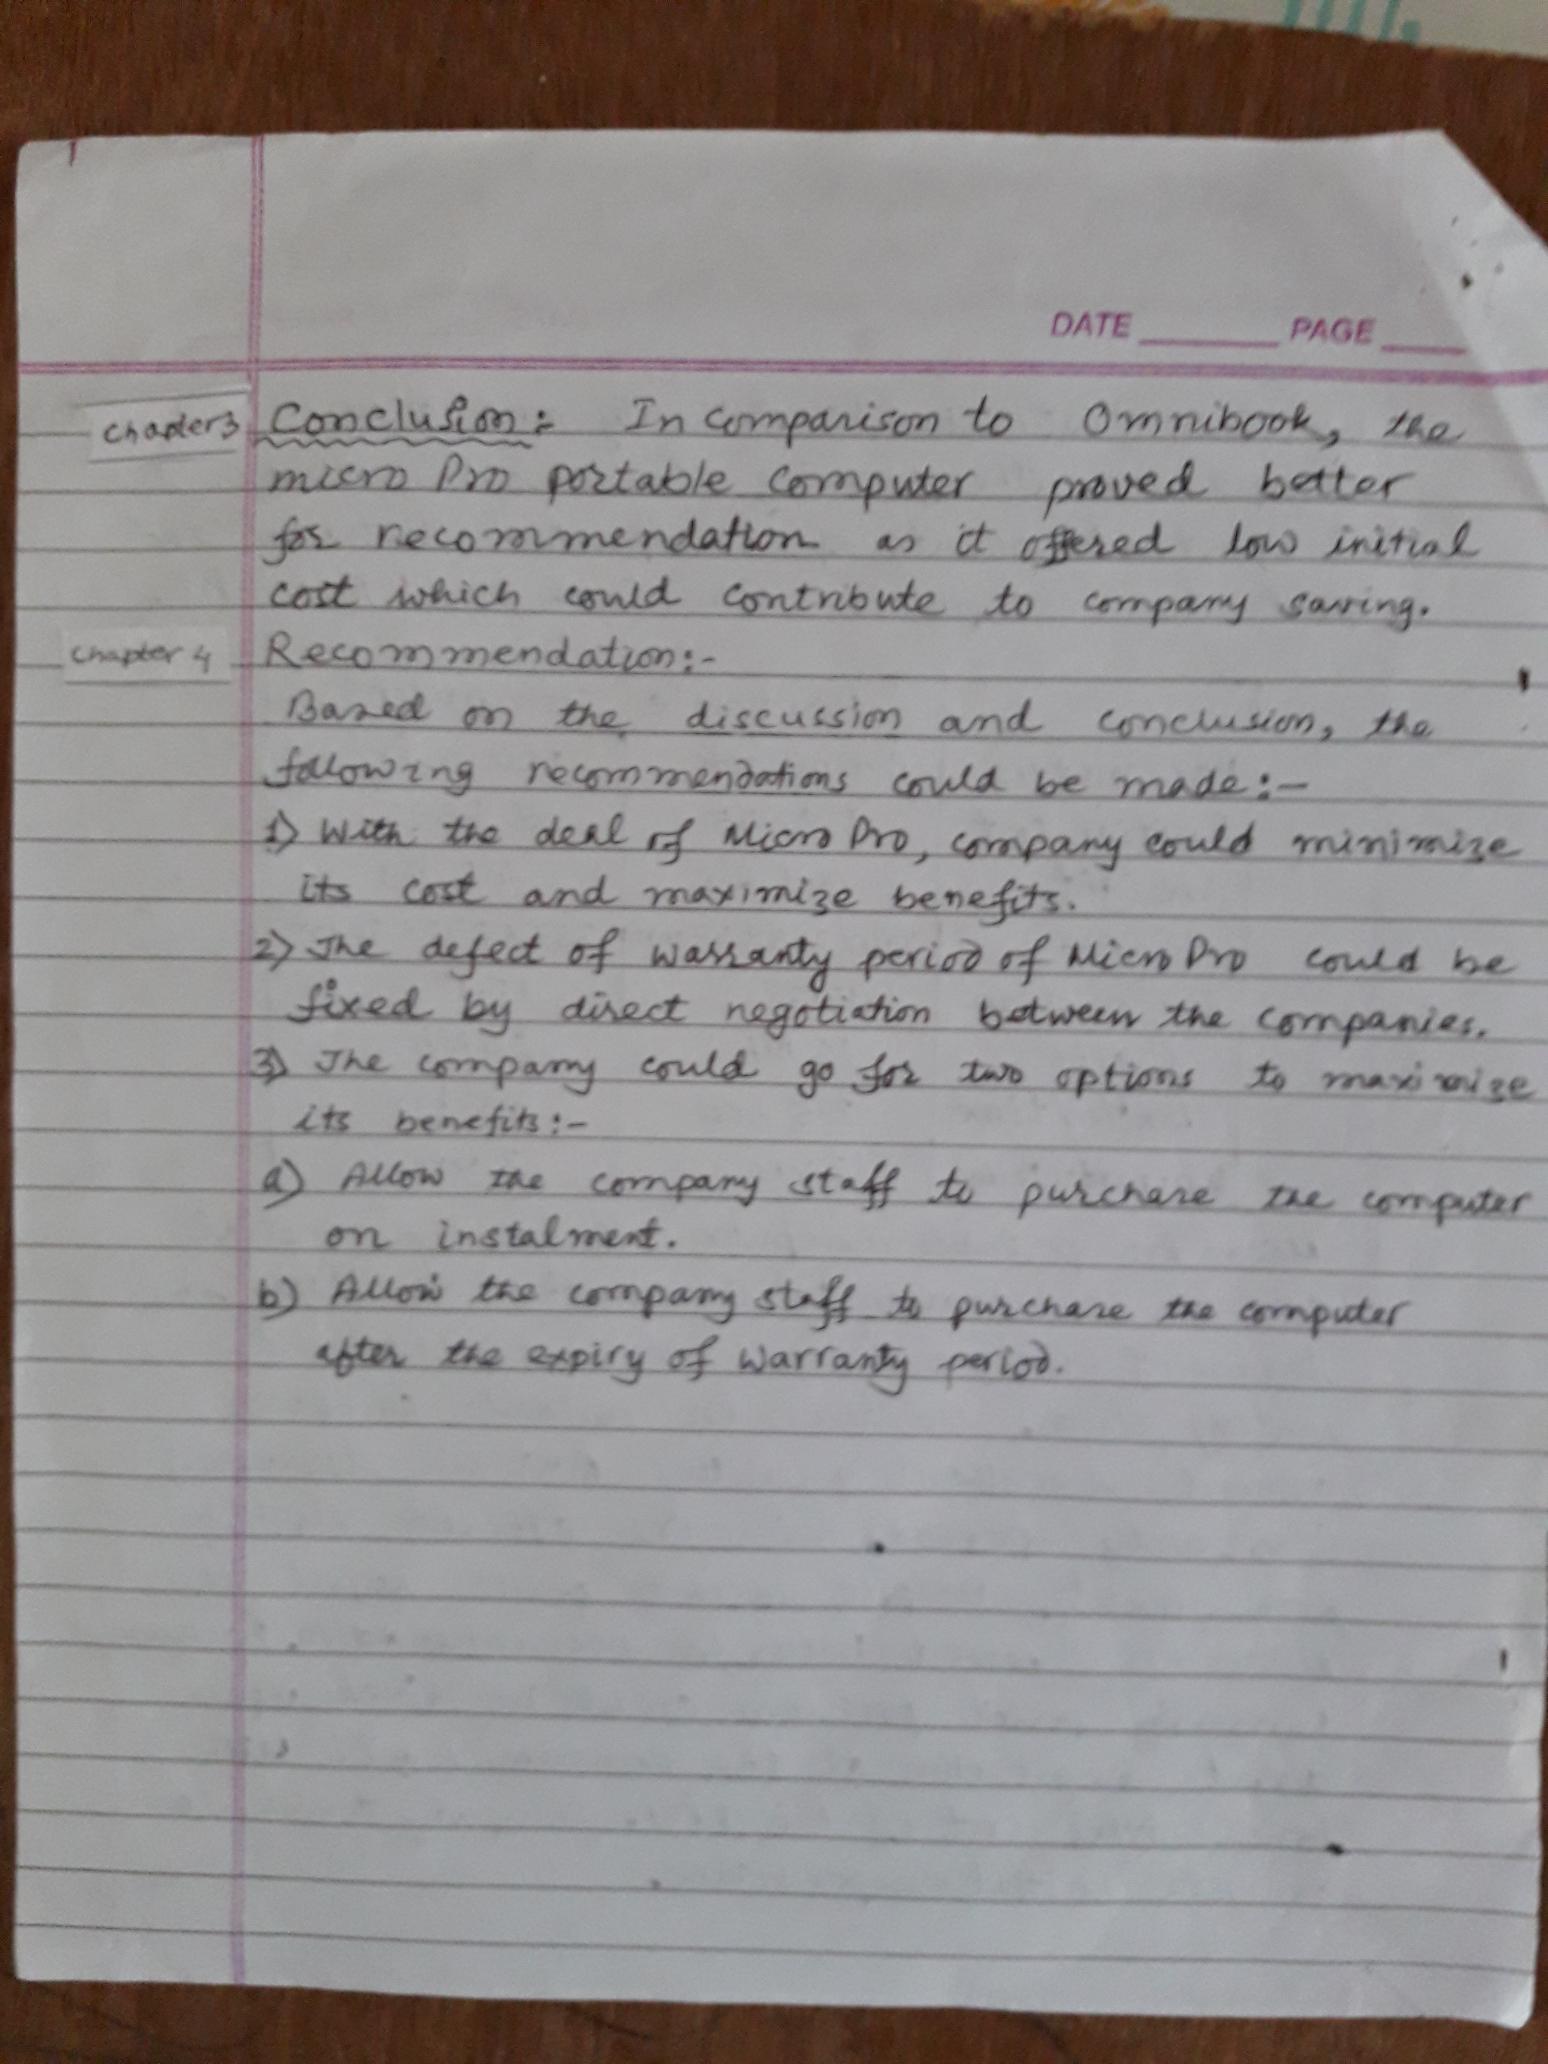 DATE PAGE
Chapter 3 Conclusion:- In comparison to Omnibook, the
micro Pro portable computer proved better
for recommendation as it offered low initial
cost which could contribute to company saving.
Chapter 4 Recommendation:-
Based on the discussion and conclusion, the
following recommendations could be made:-
1) With the deal of Micro Pro, company could minimize
its cost and maximize benefits.
2) The defect of warranty period of Micro Pro could be
fixed by direct negotiation between the companies.
3) The company could go for two options to maximize
its benefits:-
a) Allow the company staff to purchase the computer
on instalment.
b) Allow the company staff to purchase the computer
after the expiry of warranty period.